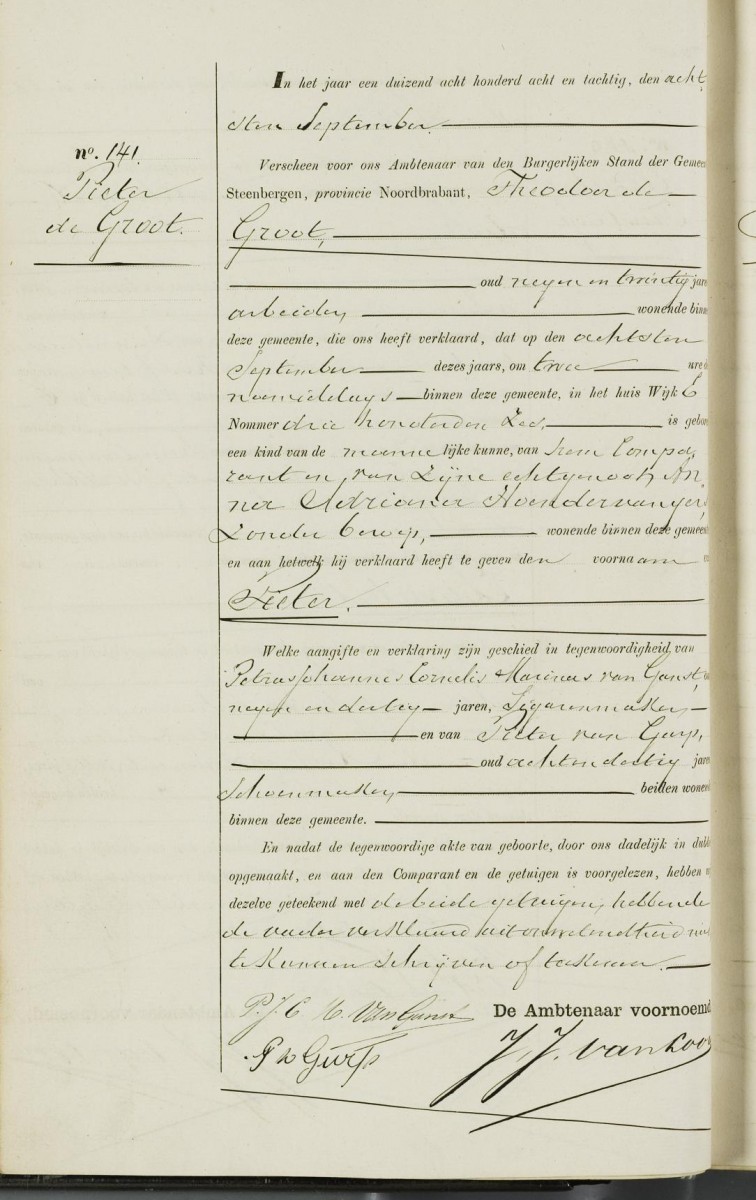 In het jaar een duizend acht honderd acht en tachtig, den acht
sten September
no. 141.
Pieter
de Groot.
Verscheen voor ons Ambtenaar van den Burgerlijken Stand der Gemee
Steenbergen, provincie Noordbrabant, Theodoor de
Groot,
oud negen en twintig jare
arbeider wonende binn
deze gemeente, die ons heeft verklaard, dat op den achtsten
September dezes jaars, om twee ure d
namiddags binnen deze gemeente, in het huis Wijk E
Nommer drie honderd en zes, is gebor
een kind van de mannelijke kunne, van hem Compa
rant en van zijne echtgenoot, An
na Adriana Hoendervanger,
zonder beroep, wonende binnen deze gemeen
en aan hetwelk hij verklaard heeft te geven den voornaam v
Pieter.
Welke aangifte en verklaring zijn geschied in tegenwoordigheid van
Petrus Johannes Cornelis Marinus van Gunst,
negen en dertig jaren, Sigarenmaker,
en van Pieter van Gurp,
oud acht en dertig jare
schoenmaker beiden wonen
binnen deze gemeente.
En nadat de tegenwoordige akte van geboorte, door ons dadelijk in dubb
opgemaakt, en aan den Comparant en de getuigen is voorgelezen, hebben w
dezelve geteekend met de beide getuigen, hebbende
de vader verklaard uit onwetendheid niet
te kunnen schrijven of teekenen.
P. J. C. M. Van Gunst De Ambtenaar voornoemd
P v Gurp J. J. van Loon